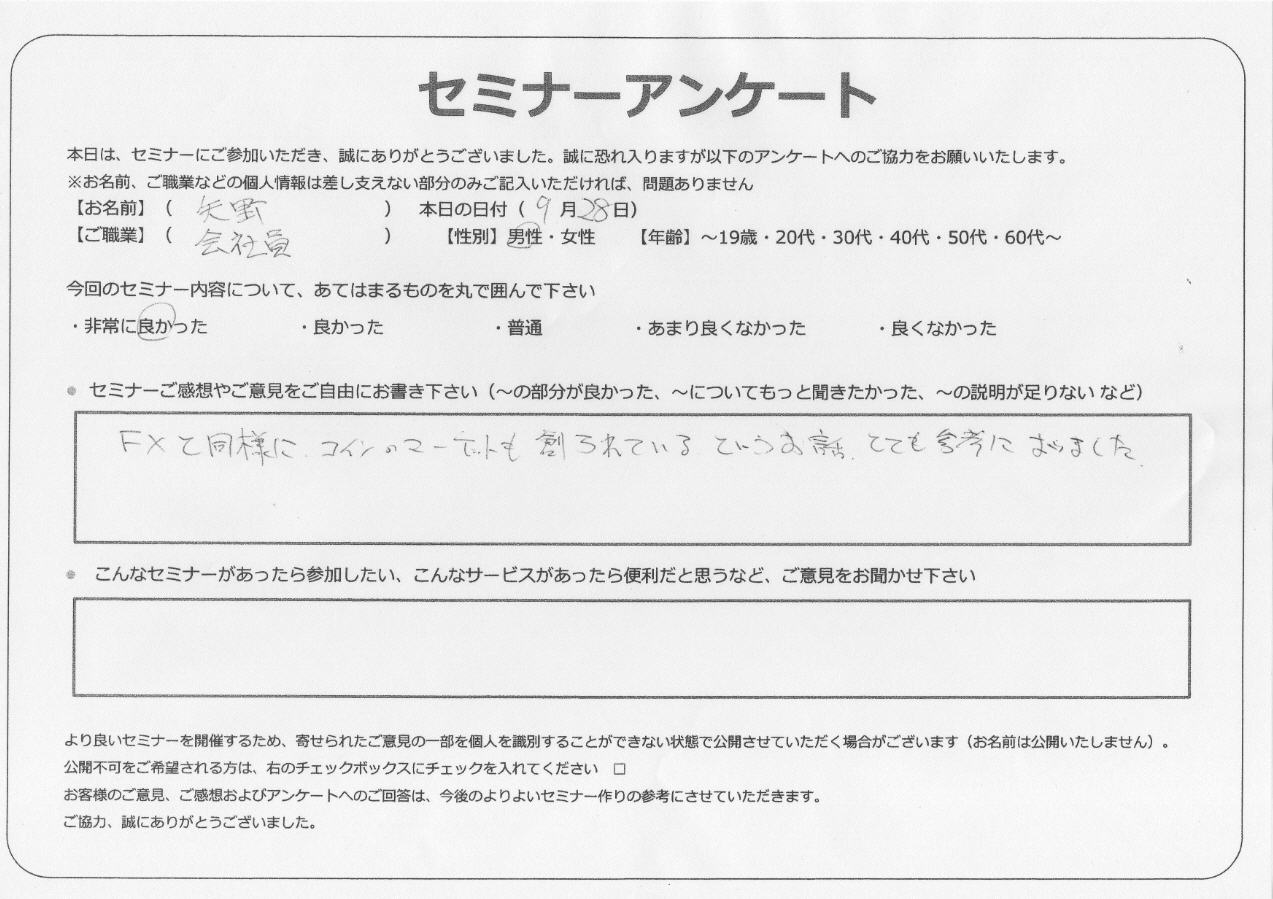 セミナーアンケート
本日は、セミナーにご参加いただき、誠にありがとうございました。誠に恐れ入りますが以下のアンケートへのご協力をお願いいたします。
※お名前、ご職業などの個人情報は差し支えない部分のみご記入いただければ、問題ありません
【お名前】（ 矢野 ） 本日の日付（ 9 月 28 日）
【ご職業】（ 会社員 ） 【性別】男性・女性 【年齢】～19歳・20代・30代・40代・50代・60代～
今回のセミナー内容について、あてはまるものを丸で囲んで下さい
・非常に良かった ・良かった ・普通 ・あまり良くなかった ・良くなかった
● セミナーご感想やご意見をご自由にお書き下さい（～の部分が良かった、～についてもっと聞きたかった、～の説明が足りない など）
FXと同様に、コインのマーケットも創られているというお話、とても参考になりました。
● こんなセミナーがあったら参加したい、こんなサービスがあったら便利だと思うなど、ご意見をお聞かせ下さい
より良いセミナーを開催するため、寄せられたご意見の一部を個人を識別することができない状態で公開させていただく場合がございます（お名前は公開いたしません）。
公開不可をご希望される方は、右のチェックボックスにチェックを入れてください □
お客様のご意見、ご感想およびアンケートへのご回答は、今後のよりよいセミナー作りの参考にさせていただきます。
ご協力、誠にありがとうございました。